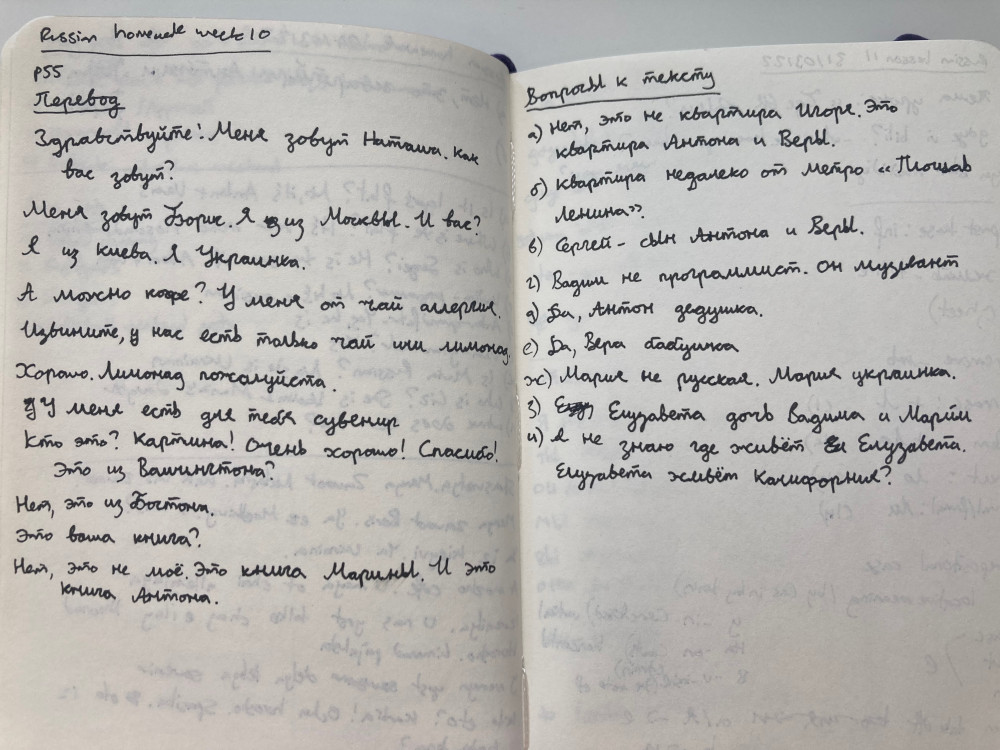 Russian homework week 10
p55
Перевод
Здравствуйте! Меня зовут Наташа. Как
вас зовут?
Меня зовут Борис. Я из Москвы. И вас?
Я из Киева. Я Украинка.
А можно кофе? У меня от чай аллергия.
Извините, у нас есть только чай или лимонад.
Хорошо. Лимонад пожалуйста.
У меня есть для тебя сувенир
Кто это? Картина! Очень хорошо! Спасибо!
Это из Вашингтона?
Нет, это из Бостона.
Это ваша книга?
Нет, это не моё. Это книга Марины. И это
книга Антона.
Вопросы к тексту
а) Нет, это не квартира Игоря. Это
квартира Антона и Веры.
б) Квартира недалеко от метро «Площадь
Ленина».
в) Сергей - сын Антона и Веры.
г) Вадим не программист. Он музывант
д) Да, Антон дедушка.
е) Да, Вера бабушка
ж) Мария не русская. Мария украинка.
з) Елузавета дочь Вадима и Марии
и) я не знаю где живёт Елузавета.
Елузавета живёт Калифорния?